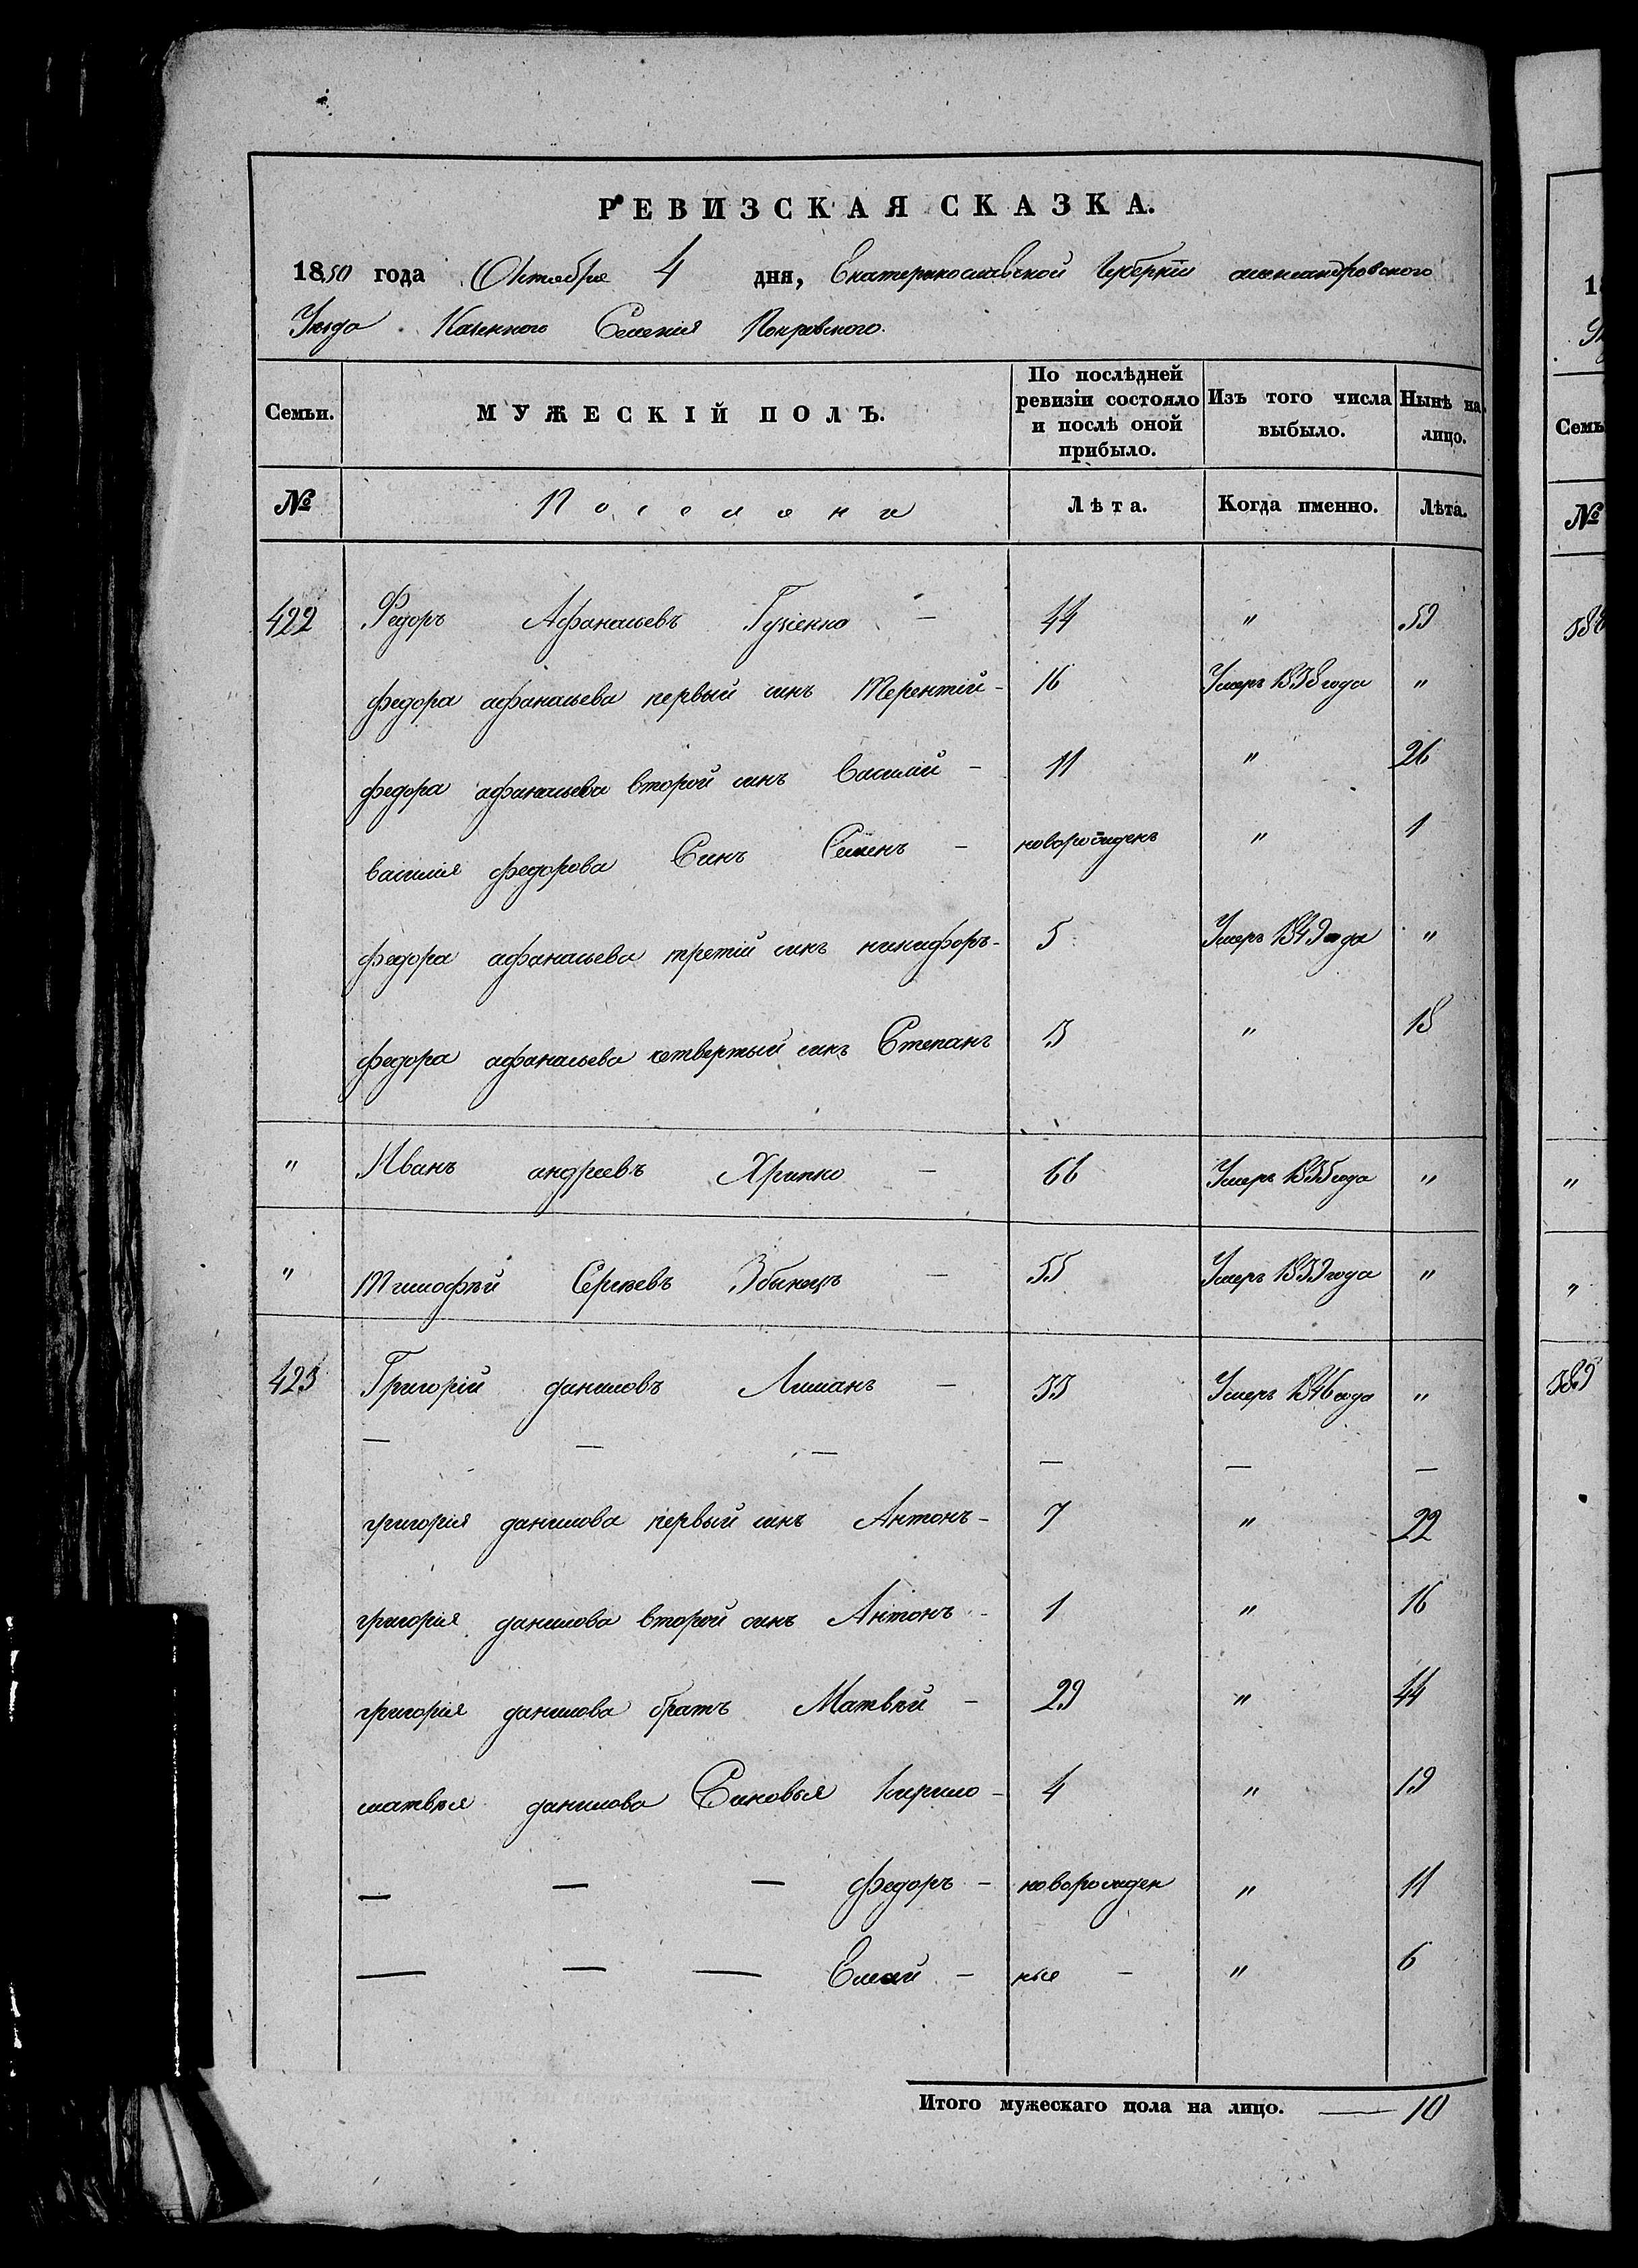 РЕВИЗСКАЯ СКАЗКА.
1850 года Октября 4 дня, Екатеринославской Губернии александровского
Уезда Казенного Селения Покровского.
Семьи. МУЖЕСКІЙ ПОЛЪ. По послѣдней ревизіи состояло и послѣ оной прибыло. Изъ того числа выбыло. Нынѣ на лицо.
№ Поселяни Лѣта. Когда именно. Лѣта.
422 Федоръ Афанасьевъ Гусіенко — 44 " 59
федора афанасьева первый синъ Терентій - 16 Умеръ 1838 года "
федора афанасьева второй синъ Василій - 11 " 26
василія федорова Синъ Семенъ - новорожденъ " 1
федора афанасьева третій синъ никифоръ - 5 Умеръ 1849 года "
федора афанасьева четвертый синъ Степанъ 3 " 18
" Иванъ андреевъ Хрипко — 66 Умеръ 1835 года "
" Тимофѣй Сергѣевъ — 55 Умеръ 1839 года "
423 Григорій даниловъ Лиманъ — 33 Умеръ 1846 года "
— — — — — —
григорія данилова первый синъ Антонъ - 7 " 22
григорія данилова второй синъ Антонъ - 1 " 16
григорія данилова братъ Матвѣй - 29 " 44
матвѣя данилова Синовья Кирило - 4 " 19
— — — федоръ - новорожден " 11
— — — - ные - " 6
Итого мужескаго пола на лицо. — 10
1
Семь
№
588
"
"
589